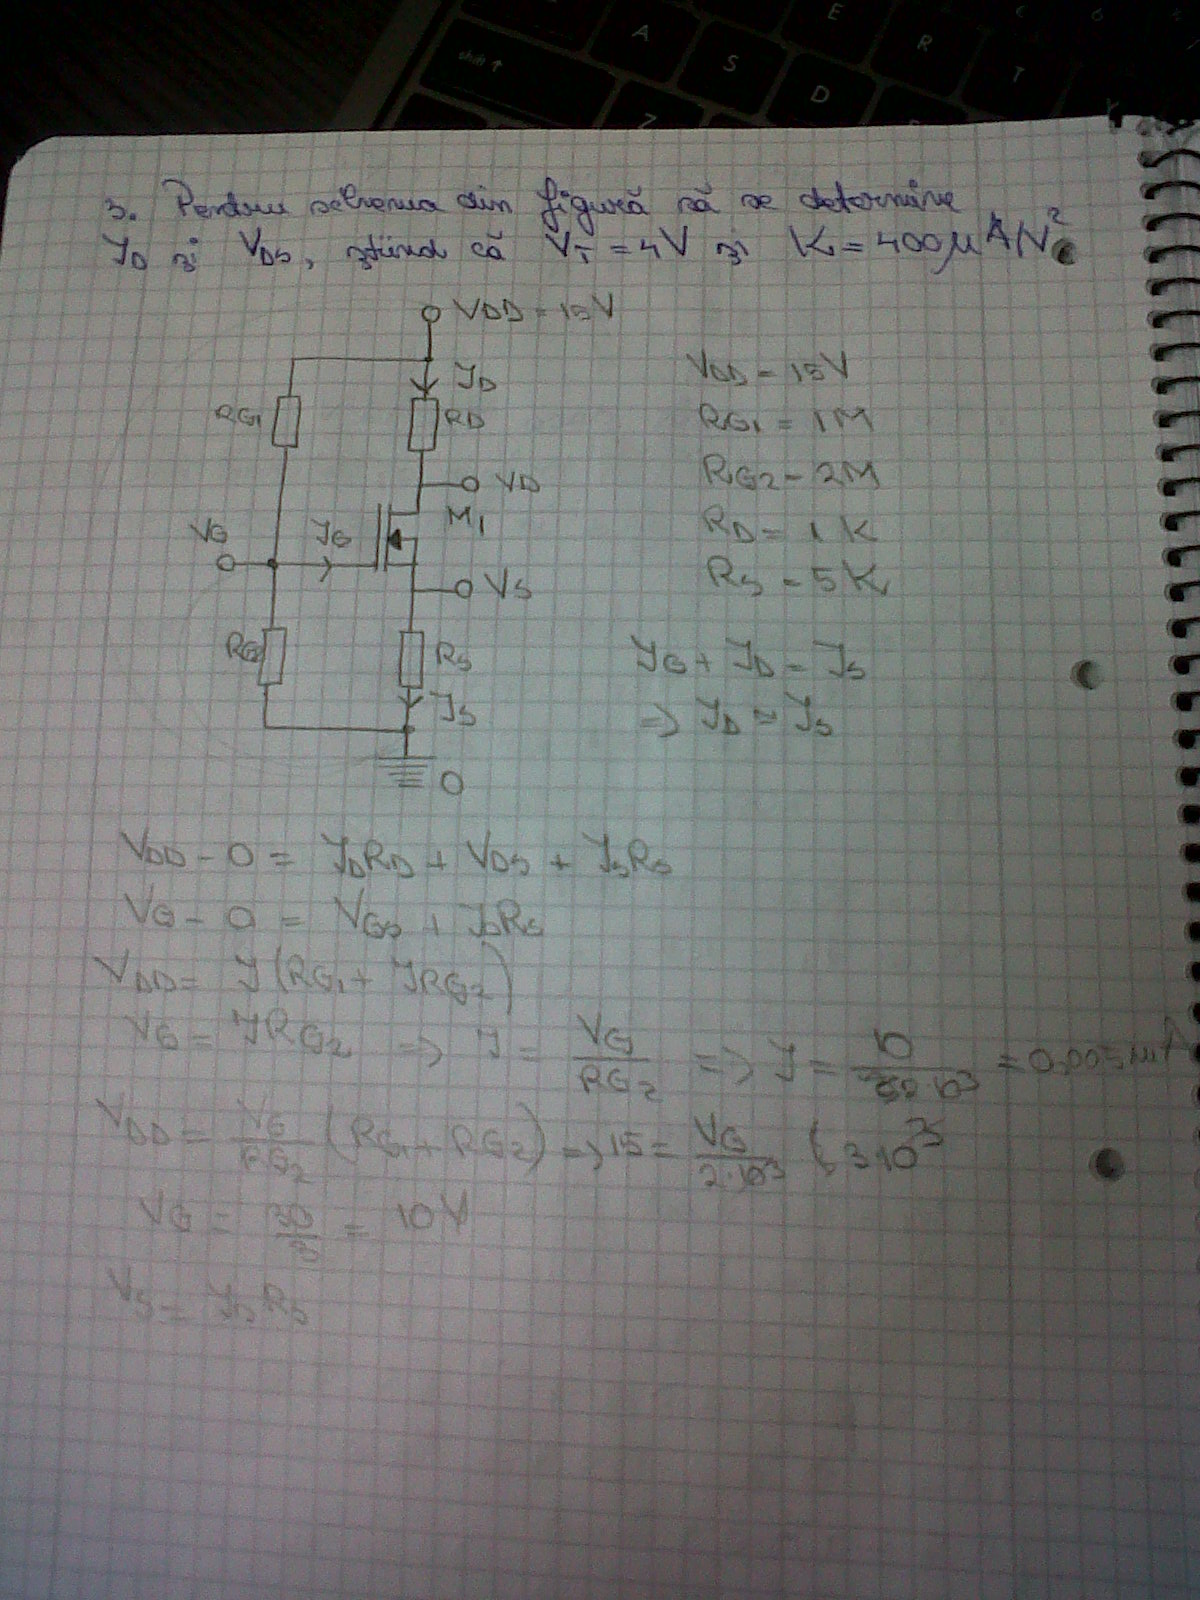 3. Pentru schema din figură să se determine
ID și VDS, știind că VT = 4V și K = 400 μA/V²
VDD = 15V
ID
RG1
RD
VD
M1
VG
IG
VS
RG2
RS
IS
0
VDD = 15V
RG1 = 1M
RG2 = 2M
RD = 1K
RS = 5K
IG + ID = IS
=> ID = IS
VDD - 0 = IDRD + VDS + ISRS
VG - 0 = VGS + IDRS
VDD = I(RG1 + IRG2)
VG = IRG2 => I = VG/RG2 => I = = 0,005mA
VDD = VG/RG2 (RG1 + RG2) => 15 = VG/2·10³ (3 10³
VG = 30/3 = 10V
VS = IDRS
A
S
D
E
R
T
Z
shift